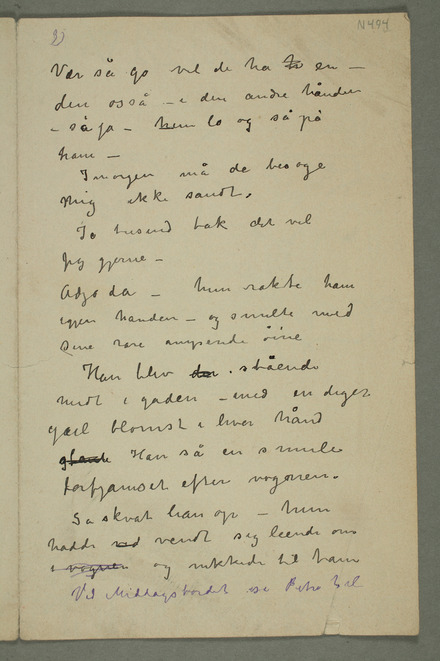 N 494
2)
Vær så go vil de ha h en –
den også – i den andre hånden
– så ja – hun lo og så på
ham –
I morgen må de besøge
Mig ikke sandt.
Jo tusend tak det vil
jeg gjerne –
Adjø da – hun rakte ham
igjen hånden – og smilte med
sine rare øine
Han blev der stående
midt i gaden – med en diger
gul blomst i hver hånd
Han så en smule
forfjamset efter vognen.
Så skvat han op – hun
hadde vendt sig leende om
i vognen og nikkede til ham
Ved Middagsbordet